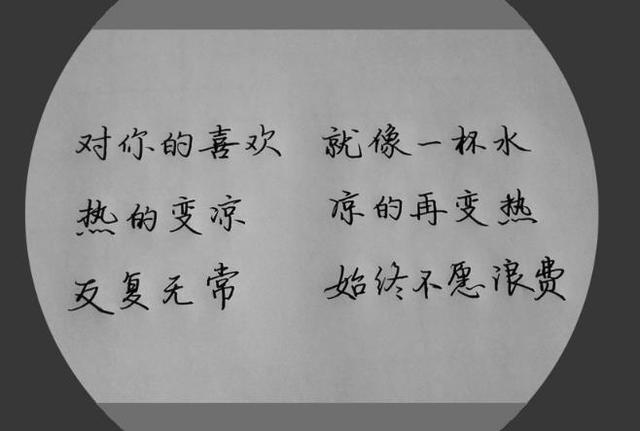 对你的喜欢 就像一杯水
热的变凉 凉的再变热
反复无常 始终不愿浪费